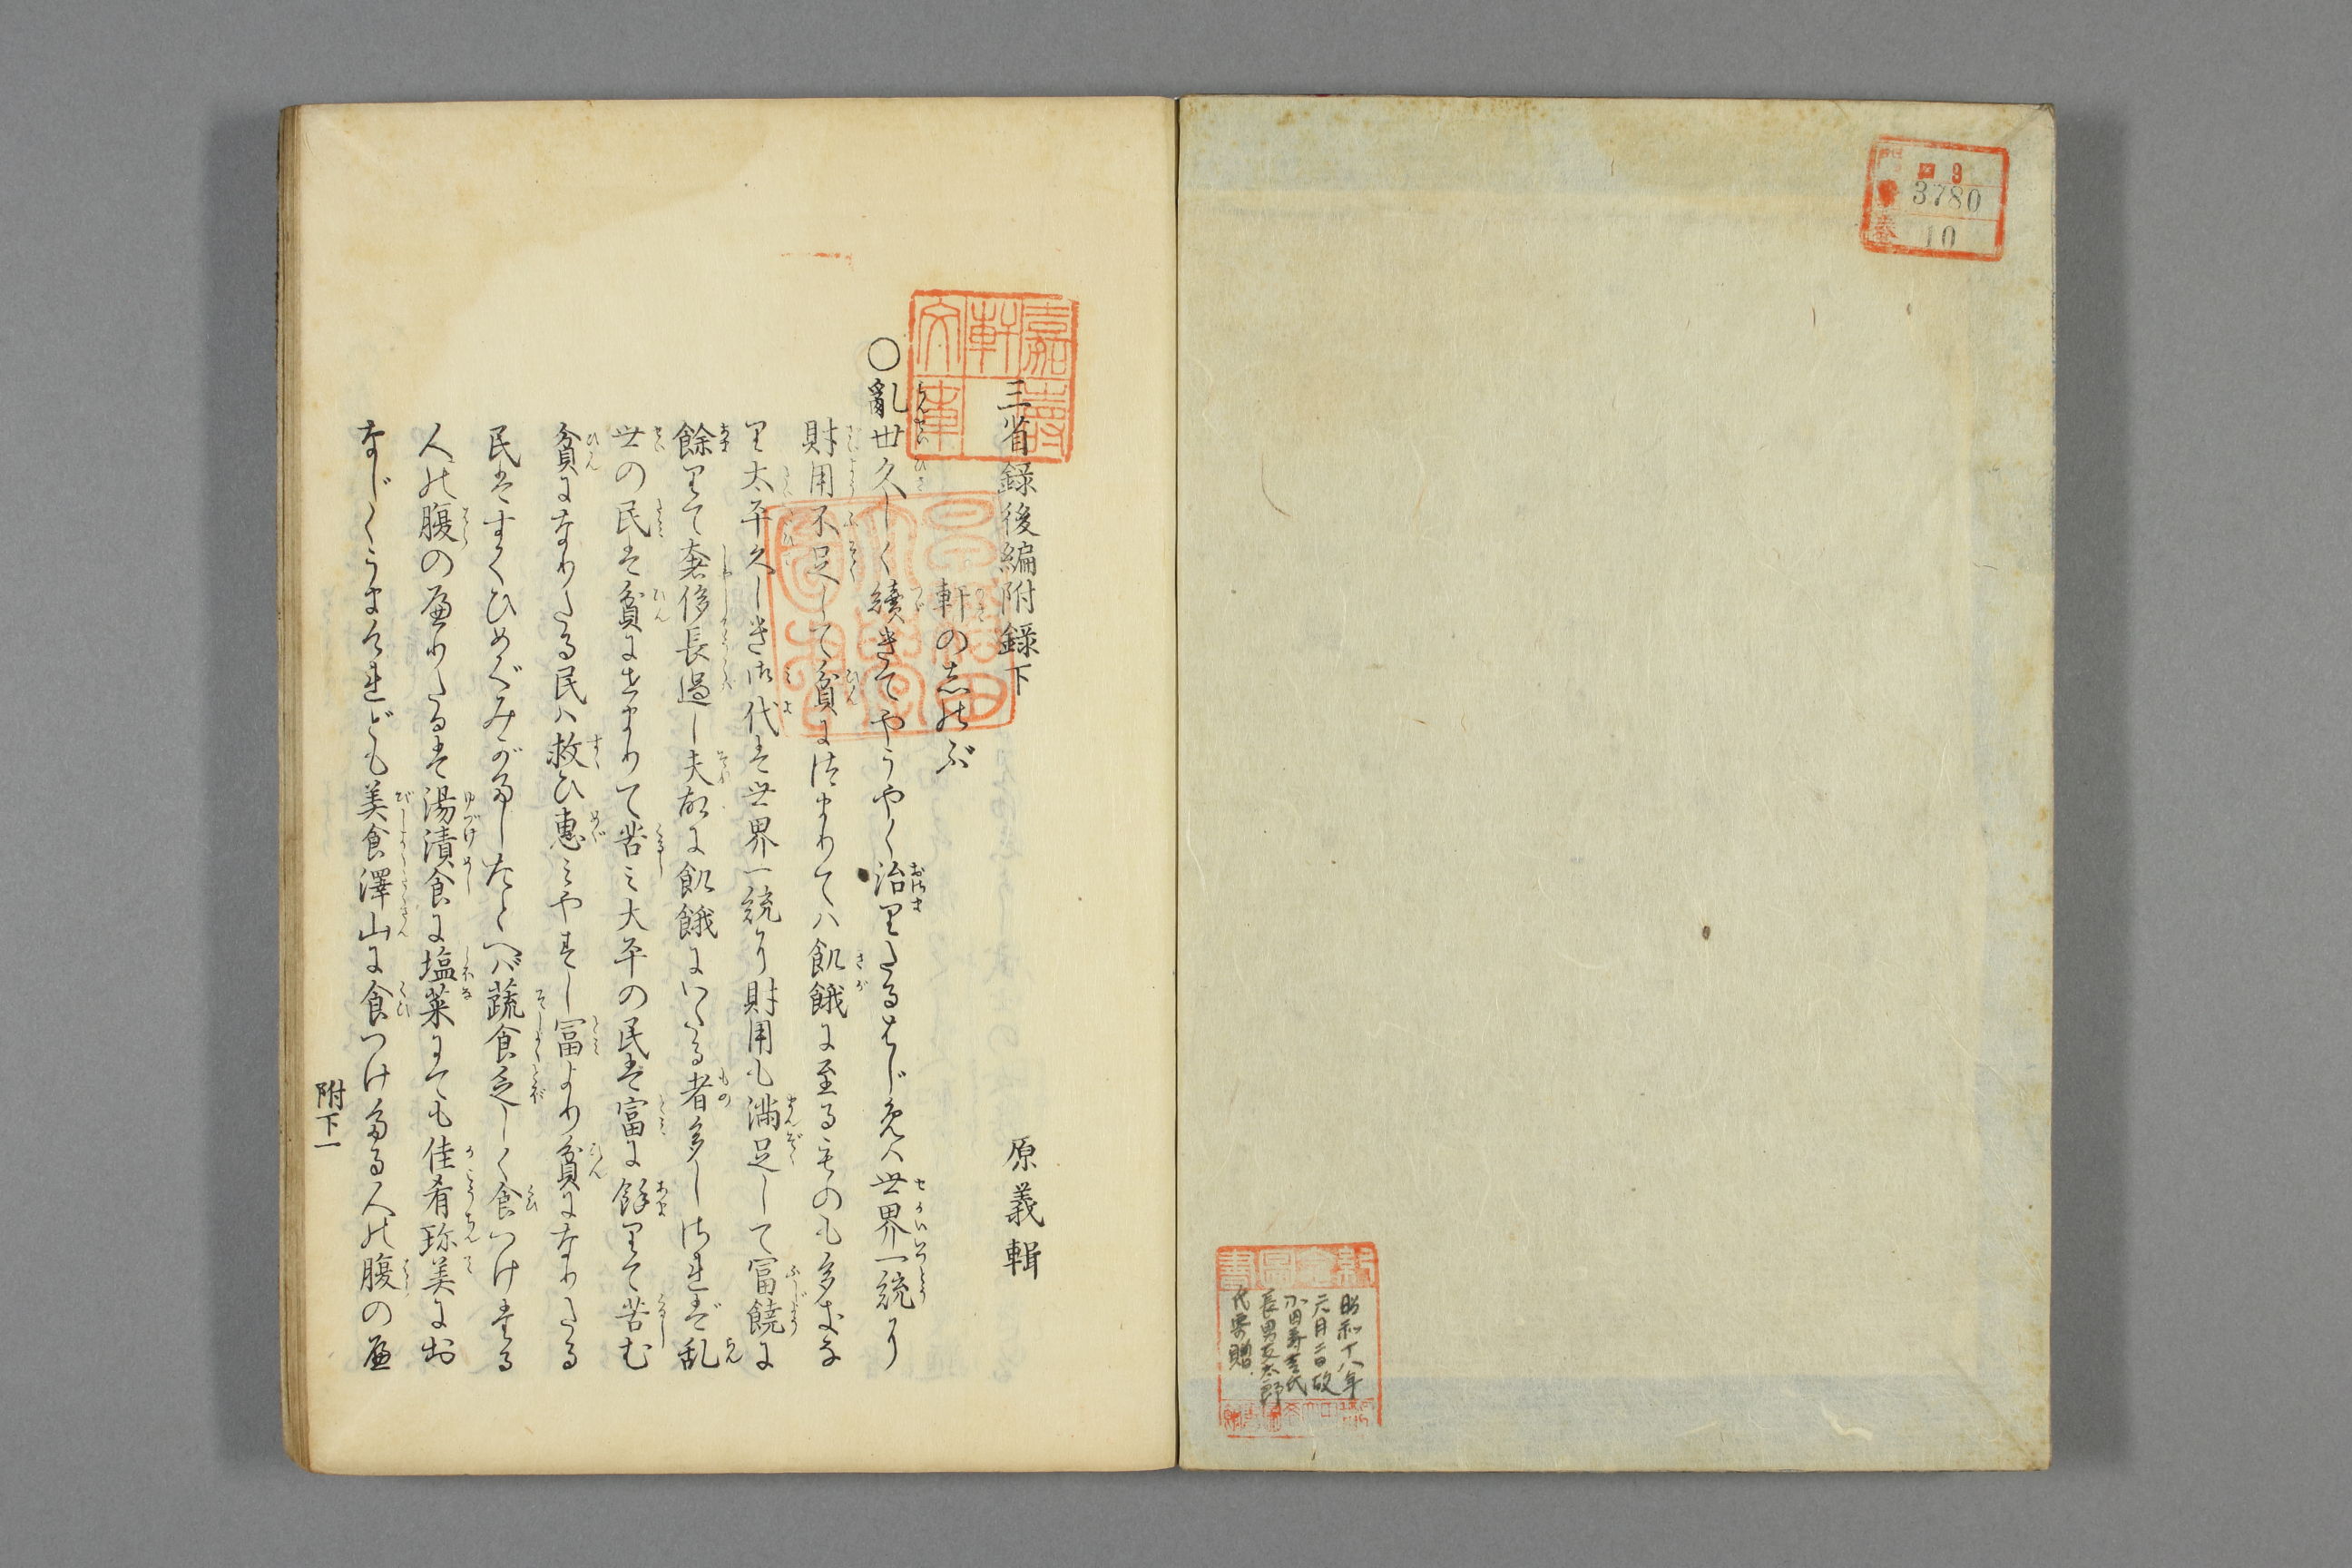 ロ 9
3780
10
昭和十八年
六月二日故
小田寿吉氏
長男友太郎
氏寄贈
三省録後編附録下
原義輯
軒のしのぶ
○亂世久しく續きてやうやく治りたるはじめハ世界一統り
財用不足して貧につまりてハ飢餓に至るものも多かな
り太平久しき御代は世界一統り財用も満足して冨饒に
餘りて奢侈長過し夫故に飢餓にいたる者多しされば乱
世の民は貧にせまりて苦ミ大平の民は富に餘りて苦む
貧になりたる民ハ救ひ惠ミやすし冨より貧になりたる
民はすくひめぐみがたしたとへバ蔬食乏しく食つけたる
人の腹の飢りたるは湯漬食に塩菜にても佳肴珎美にお
なじくうまけれども美食澤山に食つけたる人の腹の飢
附下一